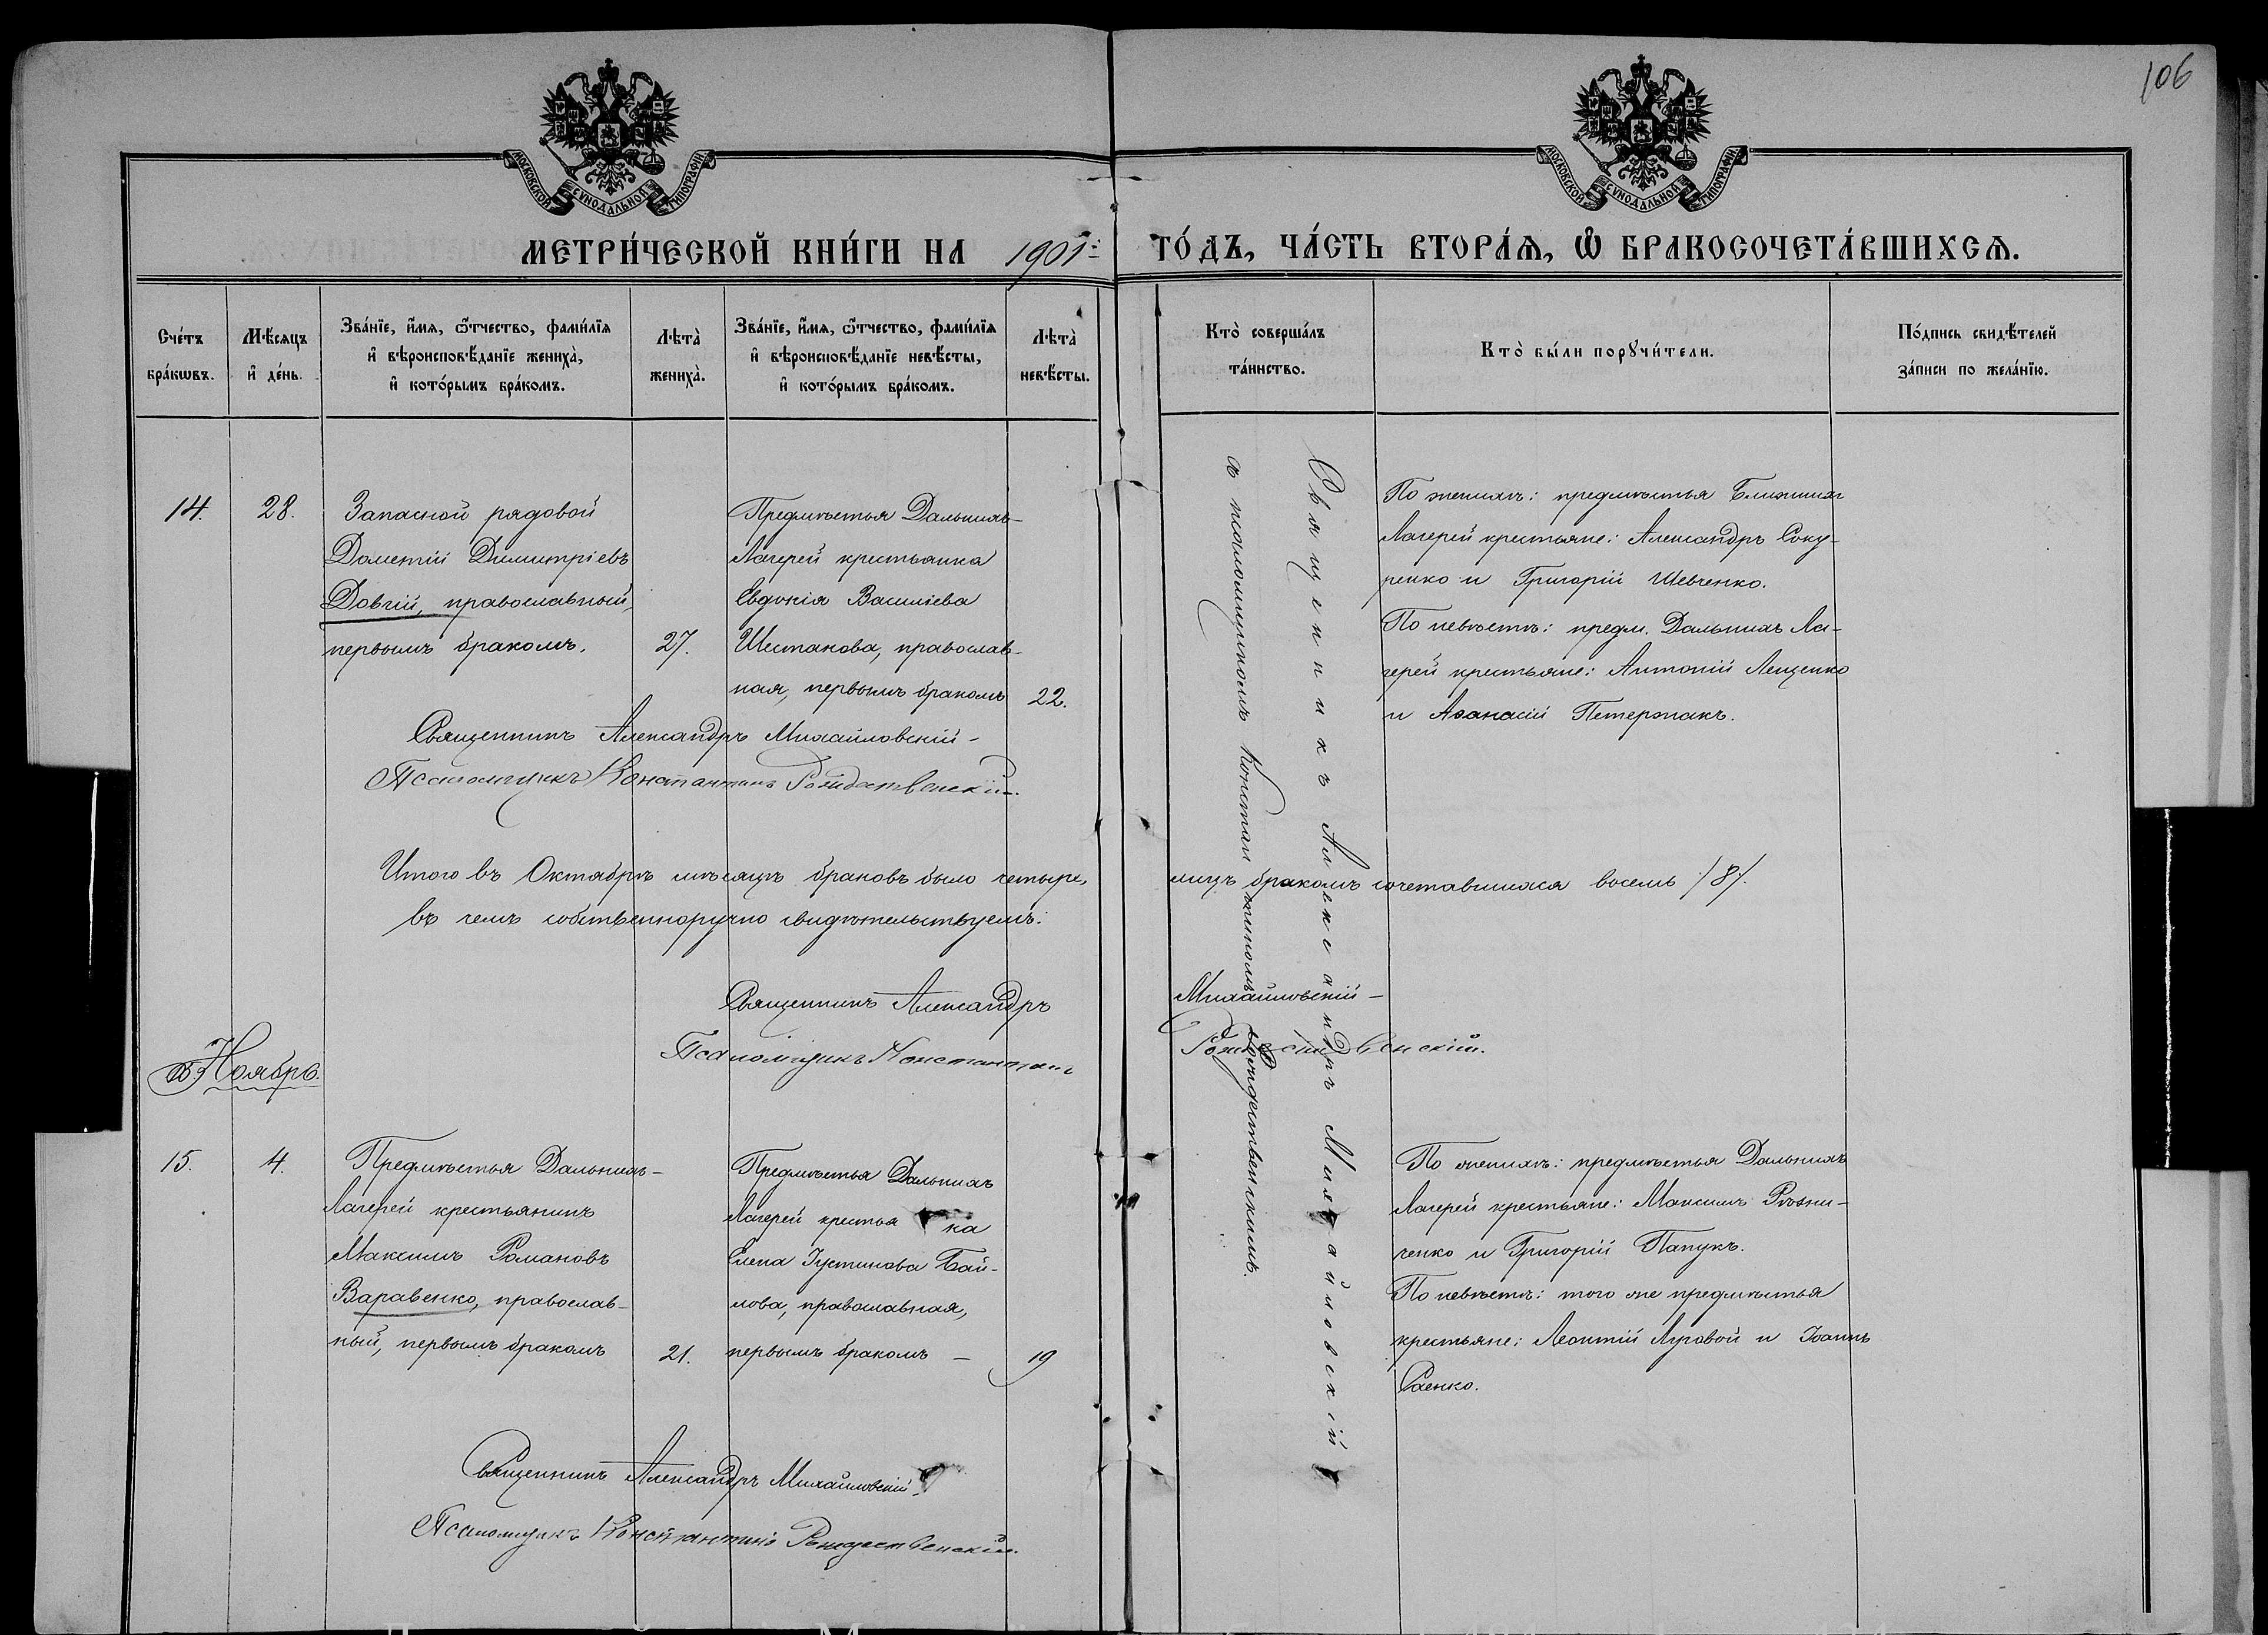 106
МОСКОВСКОЙ СУНОДАЛЬНОЙ ТИПОГРАФІИ
МОСКОВСКОЙ СУНОДАЛЬНОЙ ТИПОГРАФІИ
МЕТРИ́ЧЕСКОЙ КНИ́ГИ НА 1901й ГО́ДЪ, ЧА́СТЬ ВТОРА́Ѧ, Ѽ БРАКОСОЧЕТА́ВШИХСѦ.
Сче́тъ бра́кѡвъ.
Мѣ́сѧцъ и҆ де́нь.
Зва́нїе, и҆́мѧ, ѻ҆́тчество, фамы́лїѧ
и҆ вѣроисповѣ́данїе жениха̀,
и҆ кото́рымъ бра́комъ.
Лѣта̀ жениха̀.
Зва́нїе, и҆́мѧ, ѻ҆́тчество, фамы́лїѧ
и҆ вѣроисповѣ́данїе невѣ́сты,
и҆ кото́рымъ бра́комъ.
Лѣта̀ невѣ́сты.
Кто̀ соверша́лъ
та́инство.
Кто̀ бы́ли порꙋчи́тели.
По́дпись свидѣ́телей
за́писи по жела́нїю.
14.
28.
Запасной рядовой
Дометій Димитріевъ
Довгій, православный,
первымъ бракомъ.
27.
Предмѣстья Дальнихъ
Лагерей крестьянка
Евдокія Василіева
Шестакова, православ-
ная, первымъ бракомъ
22.
Священникъ Александръ Михайловскій
съ псаломщикомъ Константиномъ Рождественскимъ.
По женихѣ: предмѣстья Ближнихъ
Лагерей крестьяне: Александръ Соку-
ренко и Григорій Шевченко.
По невѣстѣ: предм. Дальнихъ Ла-
герей крестьяне: Антоній Лещенко
и Аѳанасій Петержакъ.
Священникъ Александръ Михайловскій
Псаломщикъ Константинъ Рождественскій.
Итого въ Октябрѣ мѣсяцѣ браковъ было четыре, лицъ бракомъ сочетавшихся восемь /8/.
въ чемъ собственноручно свидѣтельствуемъ:
Священникъ Александръ Михайловскій
Псаломщикъ Константинъ Рождественскій.
Ноябрь.
15.
4.
Предмѣстья Дальнихъ
Лагерей крестьянинъ
Максимъ Романовъ
Варавенко, православ-
ный, первымъ бракомъ
21.
Предмѣстья Дальнихъ
Лагерей крестья ка
Елена Іустинова Бай-
лова, православная,
первымъ бракомъ
19
По женихѣ: предмѣстья Дальнихъ
Лагерей крестьяне: Максимъ Рѣзни-
ченко и Григорій Папукъ.
По невѣстѣ: того же предмѣстья
крестьяне: Леонтій Луговой и Іоаннъ
Саенко.
Священникъ Александръ Михайловскій
Псаломщикъ Константинъ Рождественскій.